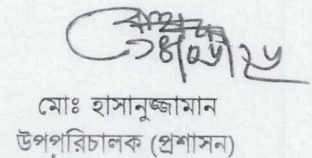 মোঃ হাসানুজ্জামান
উপপরিচালক (প্রশাসন)